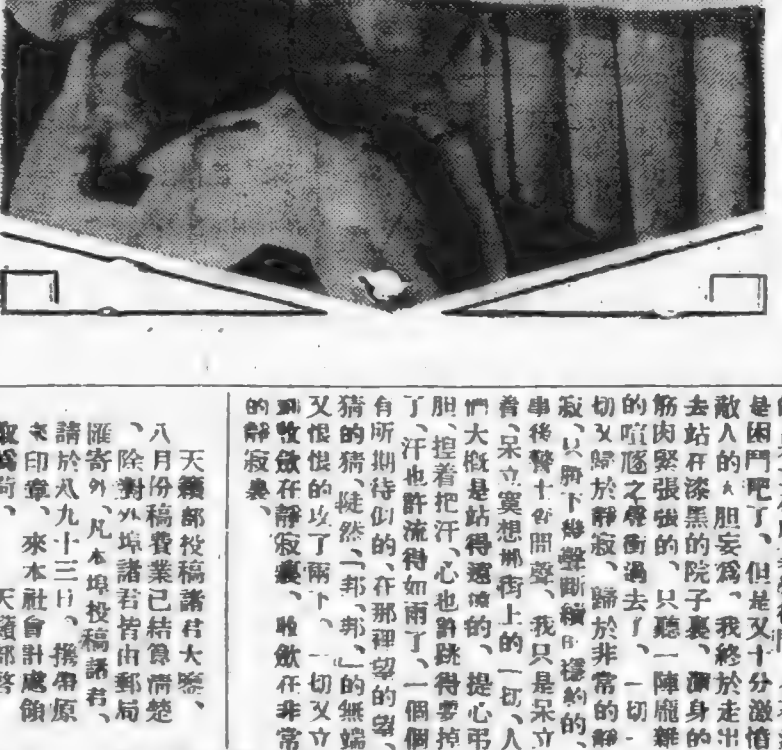 是困鬥吧了、但是又十分激憤
敵人的大胆妄爲、我終於走出
去站在漆黑的院子裏、渾身的
筋肉緊張強的、只聽一陣龐雜
的喧 之聲衝過去了、一切
切又歸於靜寂、歸於非常的靜
寂、只賸下幾聲斷續的穩約的、
串後聲十 開聲、我只是呆立
着、呆立寞想 街上的一切、人
們大槪是站得遠遠的、提心弔
胆、揑着把汗、心也許跳得要掉
了、汗也許流得如雨了、一個個
有所期待似的、在那裡望的望、
猜的猜、陡然、「邦、邦、」的無端
又恨恨的攻了兩下、一切又立
刻收斂在靜寂裏、收斂在非常
的靜寂裏、
天籟部投稿諸君大鑒、
八月份稿費業已結算淸楚
、除對外埠諸君皆由郵局
滙寄外、凡本埠投稿諸君、
請於八九十三日、携帶原
來印章、來本社會計處領
取爲荷、 天籟部啓